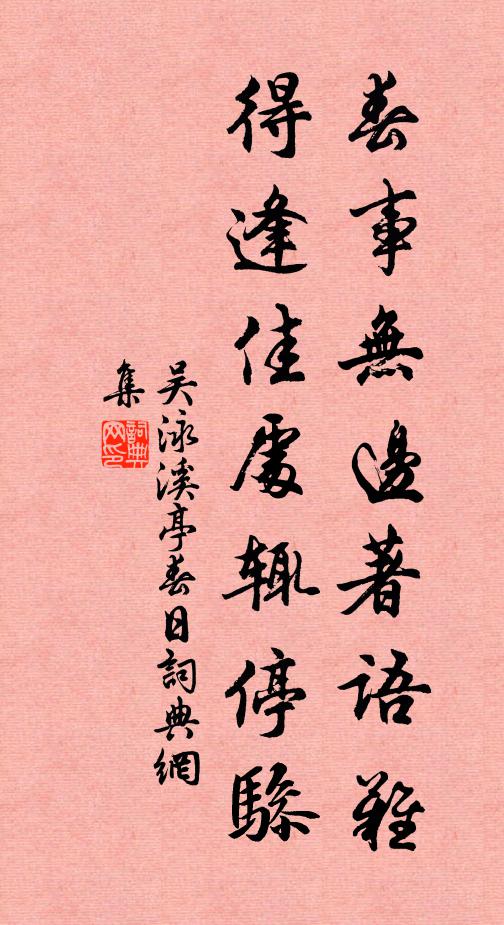 春事無邊著語難
得逢佳處輒停驂
吳泳溪亭春日詞典網
集
詞典網印